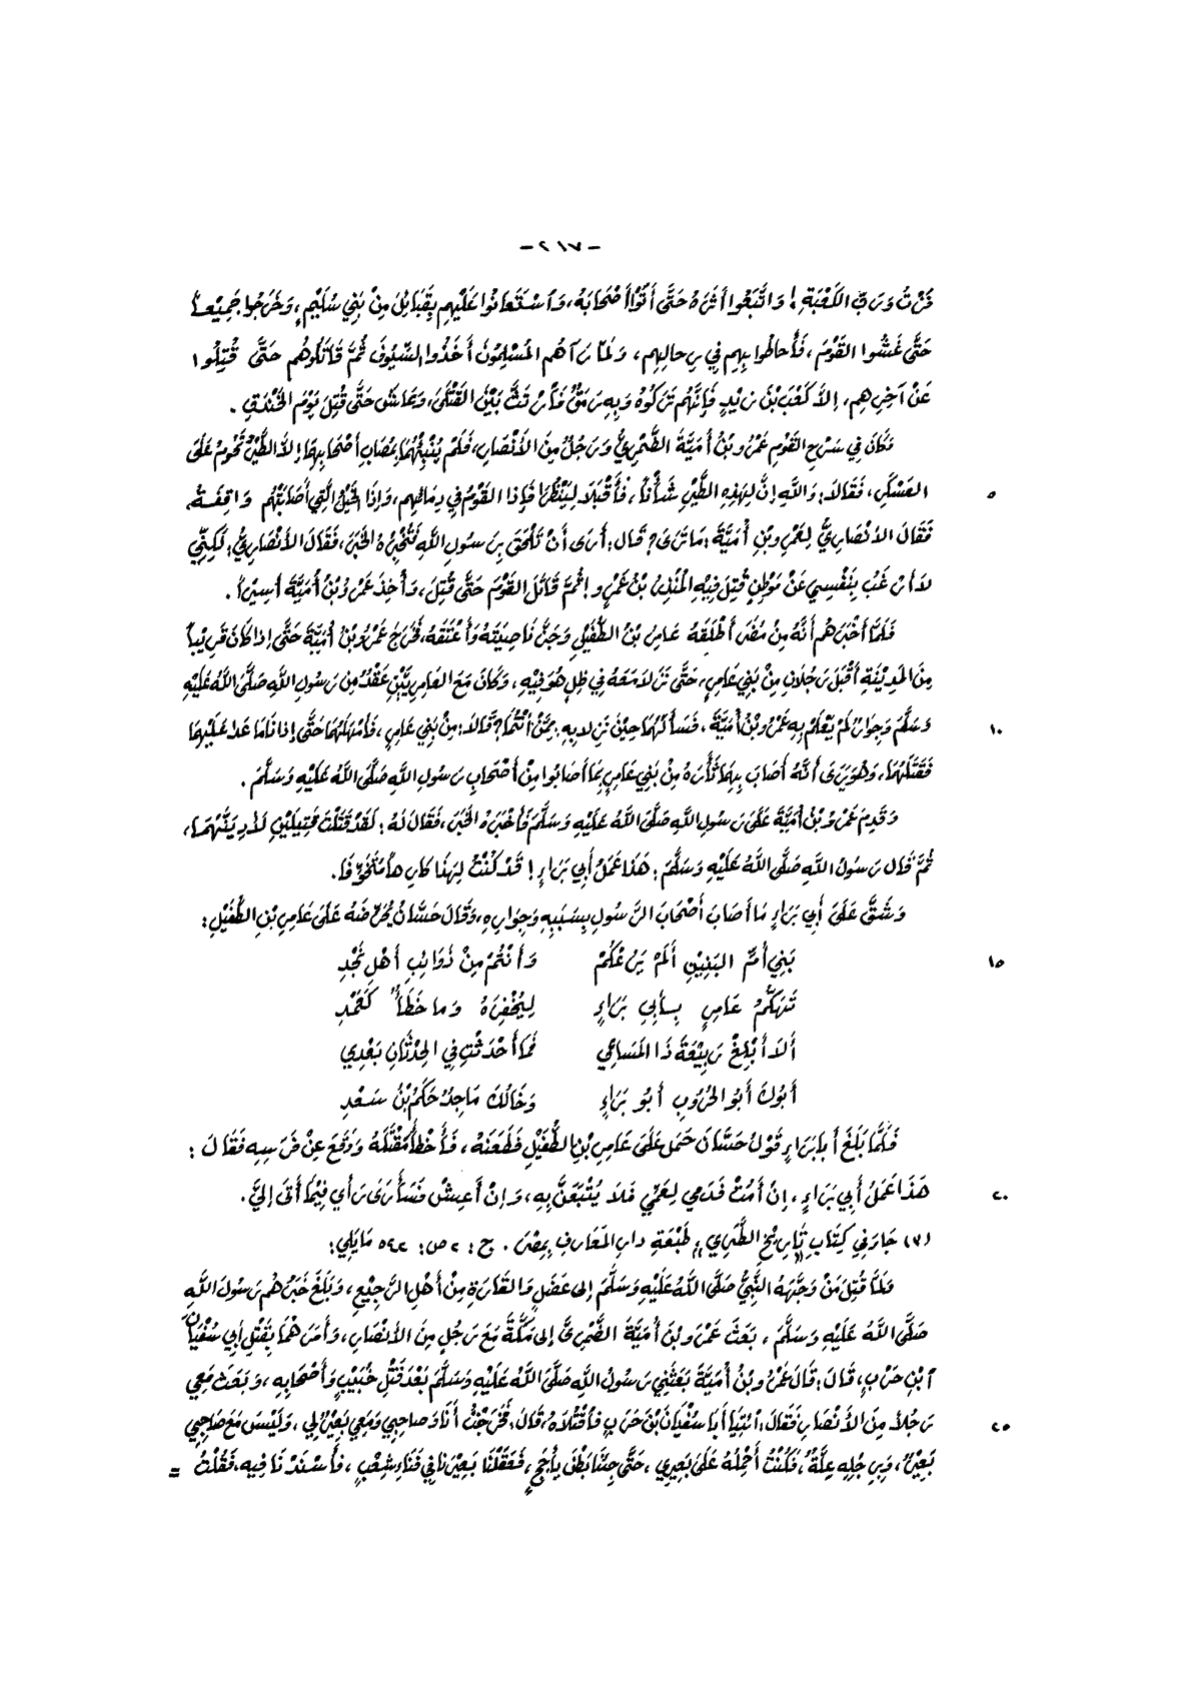 - ٢١٧ -
فُزْتُ وَرَبِّ الكَعْبَةِ! وَاتَّبَعُوا أَثَرَهُ حَتَّى أَتَوْا أَصْحَابَهُ، وَاَسْتَعَانُوا عَلَيْهِم بِقَبَائِلَ مِنْ بَنِي سُلَيْمٍ، وَخَرَجُوا جَمِيْعاً
حَتَّى غَشُوا القَوْمَ، فَأَحاطُوا بِهِم فِي رِحالِهِم، وَلَمَّا رَآهُم المُسْلِمُونَ أَخَذُوا السُّيُوفَ ثُمَّ قَاتَلُوهُم حَتَّى قُتِلُوا
عَنْ آخِرِهِم، إِلاَّ كَعْبَ بْنَ زَيْدٍ فَإِنَّهُم تَرَكُوهُ وَبِهِ رَمَقٌ فَأرْتَثَّ بَيْنَ القَتْلَى، وَعَاشَ حَتَّى قُتِلَ يَوْمَ الخَنْدَقِ.
وَكَانَ فِي سَرْحِ القَوْمِ عَمْرُو بنُ أُمَيَّةَ الضَّمْرِيُّ وَرَجُلٌ مِنَ الأَنْصَارِ، فَلَمْ يُنْبِئْهُمَا بِمُصَابِ أَصْحَابِهِمَا إِلاَّ الطَّيْرُ تَحُومُ عَلَى
٥ العَسْكَرِ، فَقَالاَ: وَاللهِ إِنَّ لِهَذِهِ الطَّيْرِ شَأْناً، فَأَقْبَلاَ لِيَنْظُرَا فَإِذا القَوْمُ فِي دِمَائِهِم، وَإِذَا الخَيْلُ الَّتِي أَصَابَتْهُم وَاقِفَةٌ،
فَقَالَ الأَنْصَارِيُّ لِعَمْرِو بْنِ أُمَيَّةَ: مَا تَرَى؟ قَال: أَرَى أَنْ نَلْحَقَ بِرَسُولِ اللهِ فَنُخْبِرُهُ الخَبَرَ، فَقَالَ الأَنْصَارِيُّ: لَكِنِّي
لاَ أَرْغَبُ بِنَفْسِي عَنْ مَوْطِنٍ قُتِلَ فِيْهِ المُنْذِرُ بْنُ عَمْرٍو! ثُمَّ قَاتَلَ القَوْمَ حَتَّى قُتِلَ، وَأُخِذَ عَمْرُو بْنُ أُمَيَّةَ أَسِيْراً.
فَلَمَّا أَخْبَرَهُم أَنَّهُ مِنْ مُضَرَ أَطْلَقَهُ عَامِرُ بْنُ الطُّفَيْلِ وَجَزَّ نَاصِيَتَهُ وَأَعْتَقَهُ، فَخَرَجَ عَمْرُو بْنُ أُمَيَّةَ حَتَّى إِذَا كَانَ قَرِيْباً
مِنَ المَدِيْنَةِ أَقْبَلَ رَجُلاَنِ مِنْ بَنِي عَامِرٍ، حَتَّى نَزَلاَ مَعَهُ فِي ظِلٍ هُوَ فِيْهِ، وَكَانَ مَعَ العَامِرِيَّيْنِ عَقْدٌ مِن رَسُولِ اللهِ صَلَّى اللهُ عَلَيْهِ
١٠ وَسَلَّمَ وَجِوَارٌ لَمْ يَعْلَمْ بِهِ عَمْرُو بْنُ أُمَيَّةَ، فَسَأَلَهُمَا حِيْنَ نَزَلاَ بِهِ: مِمَّنْ أَنْتُمَا؟ قَالاَ: مِنْ بَنِي عَامِرٍ، فَأَمْهَلَهُمَا حَتَّى إِذَا نَامَا عَدَا عَلَيْهِمَا
فَقَتَلَهُمَا، وَهُوَ يَرَى أَنَّهُ أَصَابَ بِهِمَا ثَأْرَهُ مِنْ بَنِي عَامِرٍ بِمَا أَصَابُوا مِنْ أَصْحَابِ رَسُولِ اللهِ صَلَّى اللهُ عَلَيْهِ وَسَلَّمَ.
وَقَدِمَ عَمْرُو بْنُ أُمَيَّةَ عَلَى رَسُولِ اللهِ صَلَّى اللهُ عَلَيْهِ وَسَلَّمَ فَأَخْبَرَهُ الخَبَرَ، فَقَالَ لَهُ: لَقَدْ قَتَلْتَ قَتِيلَيْنِ لَأُدِيَنَّهُمَا،
ثُمَّ قَالَ رَسُولُ اللهِ صَلَّى اللهُ عَلَيْهِ وَسَلَّمَ: هَذَا عَمَلُ أَبِي بَرَاءٍ! قَدْ كُنْتُ لِهَذَا كَارِهاً مُتَخَوِّفَا.
وَشَقَّ عَلَى أَبِي بَرَاءٍ مَا أَصَابَ أَصْحَابَ الرَّسُولِ بِسَبَبِهِ وَجِوَارِهِ، وَقَالَ حَسَّانُ يُحَرِّضُهُ عَلَى عَامِرِ بْنِ الطُّفَيْلِ:
١٥ بَنِي أُمِّ البَنِيْنِ أَلَمْ يَرُعْكُمْ وَأَنْتُمْ مِنْ ذَوَائِبِ أَهْلِ نَجْدِ
تَهَكُّمُ عَامِرٍ بِأَبِي بَرَاءٍ لِيُخْفِرَهُ وَمَا خَطَأٌ كَعَمْدِ
أَلاَ أَبْلِغْ رَبِيْعَةَ ذَا المَسَاعِي فَمَا أَحْدَثْتَ فِي الحِدْثَانِ بَعْدِي
أَبُوكَ أَبُو الحُرُوبِ أَبُو بَرَاءٍ وَخَالُكَ مَاجِدٌ حَكَمُ بْنُ سَعْدِ
فَلَمَّا بَلَغَ أَبَا بَرَاءٍ قَوْلُ حَسَّانَ حَمَلَ عَلَى عَامِرِ بْنِ الطُّفَيْلِ فَطَعَنَهُ، فَأَخْطَأَ مَقْتَلَهُ وَوَقَعَ عِنْ فَرَسِهِ فَقَالَ:
٢٠ هَذَا عَمَلُ أَبِي بَرَاءٍ، إِنْ أَمُتْ فَدَمِي لِعَمِّي فَلاَ يُتْبَعَنَّ بِهِ، وَإِنْ أَعِيشْ فَسَأَرَى رَأْيِي فِيْمَا أَتَى إِلَيَّ.
(٧) جَاءَ فِي كِتَابِ «تَارِيْخِ الطَّبَرِي» طَبْعَةِ دارِ المَعَارِفِ بِمِصْرَ. ج: ٢ ص: ٥٤٢ مَا يَلِي:
وَلَمَّا قُتِلَ مَنْ وَجَّهَهُ النَّبِيُّ صَلَّى اللهُ عَلَيْهِ وَسَلَّمَ إِلَى عَضَلٍ وَالقَارَةِ مِنْ أَهْلِ الرَّجِيْعِ، وَبَلَغَ خَبَرُهُم رَسُولَ اللهِ
صَلَّى اللهُ عَلَيْهِ وَسَلَّمَ، بَعَثَ عَمْرَو بْنَ أُمَيَّةَ الضَّمْرِيَّ إِلَى مَكَّةَ مَعَ رَجُلٍ مِنَ الأَنْصَارِ، وَأَمَرَهُمَا بِقَتْلِ أَبِي سُفْيَانَ
آبْنِ حَرْبٍ، قَالَ: قَالَ عَمْرُو بْنُ أُمَيَّةَ بَعَثَنِي رَسُولُ اللهِ صَلَّى اللهُ عَلَيْهِ وَسَلَّمَ بَعْدَ قَتْلِ خُبَيْبٍ وَأَصْحَابِهِ، وَبَعَثَ مَعِي
٢٥ رَجُلاً مِنَ الأَنْصَارِ فَقَالَ: ائْتِيَا أَبَا سُفْيَانَ بْنَ حَرْبٍ فَاقْتُلاَهُ، قَالَ: فَخَرَجْتُ أَنَا وَصَاحِبِي وَمَعِي بَعِيْرٌ لِي، وَلَيْسَ مَعَ صَاحِبِي
بَعِيْرٌ، وَبِرِجْلِهِ عِلَّةٌ، فَكُنْتُ أَحْمِلُهُ عَلَى بَعِيرِي، حَتَّى جِئْنَا بَطْنَ يَأْجَجٍ، فَعَقَلْنَا بَعِيْرَنَا فِي فَنَاءِ شِعْبٍ، فَأَسْنَدْنَا فِيهِ، فَقُلْتُ =